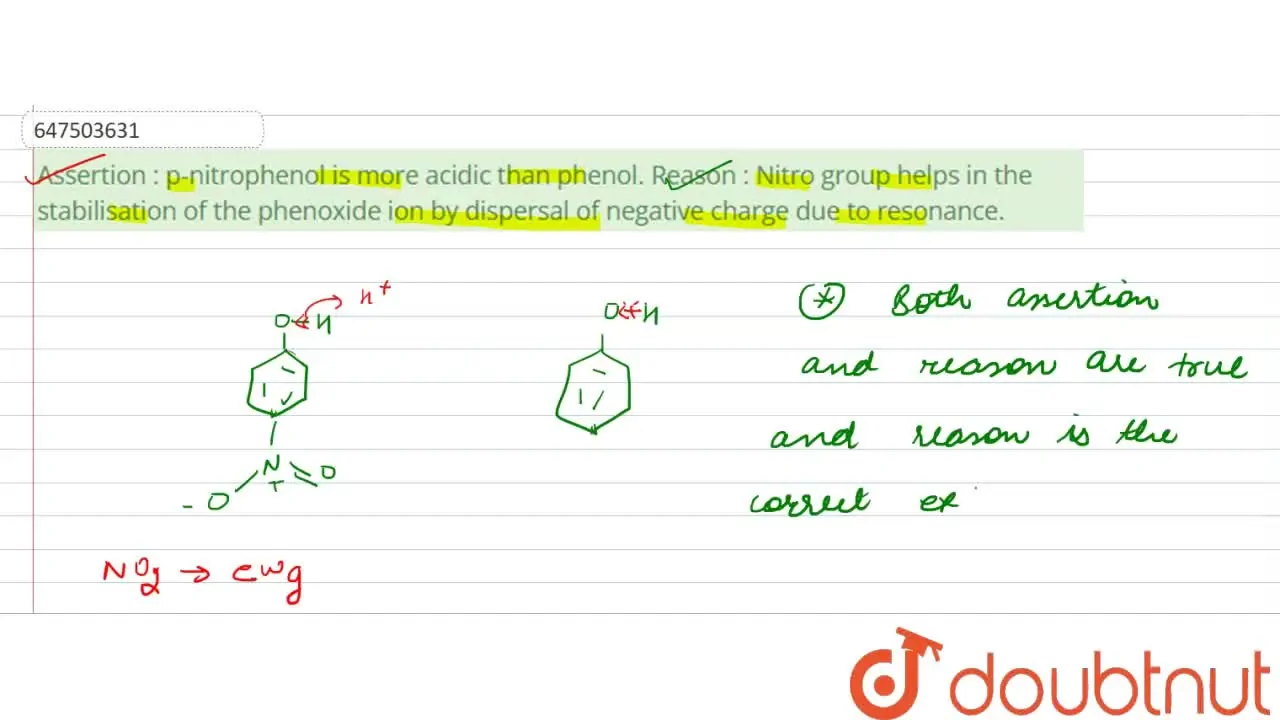 647503631
Assertion : p-nitrophenol is more acidic than phenol. Reason : Nitro group helps in the
stabilisation of the phenoxide ion by dispersal of negative charge due to resonance.
H+
O-H
O-H
N
+
O
- O
NO2 → ewg
* Both assertion
and reason are true
and reason is the
correct ex
doubtnut